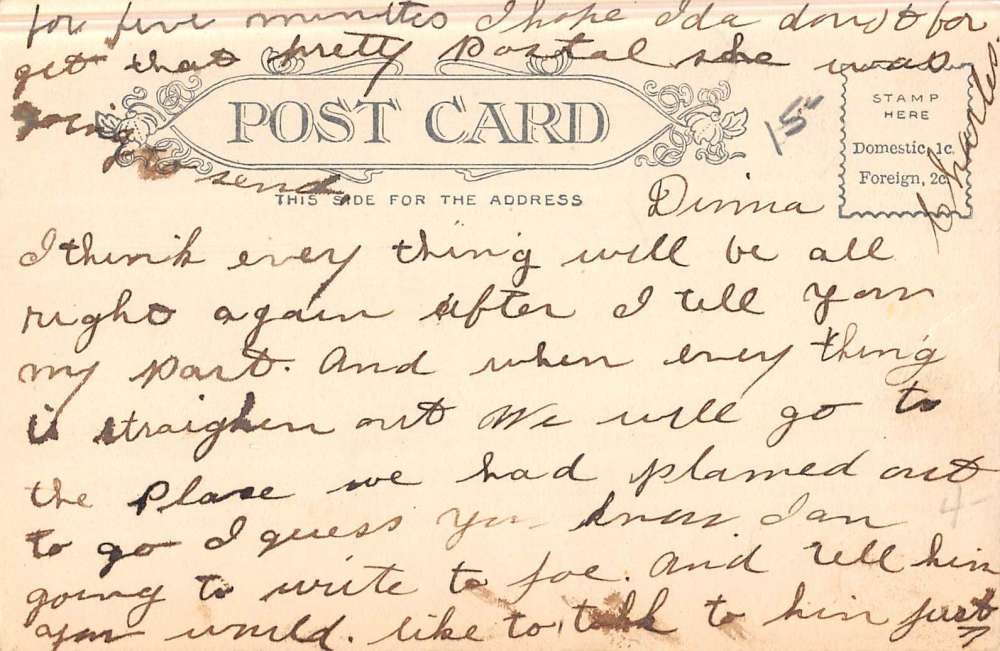 for five minutes I hope Ida don,t for
get that pretty postal she was
going to send,
POST CARD
THIS SIDE FOR THE ADDRESS
STAMP
HERE
Domestic, 1c.
Foreign, 2c.
15
Charles
Dinna
I think every thing will be all
right again after I tell you
my part. And when every thing
is straighten out We will go to
the Place we had planned out
to go I guess you know I an
going to write to Joe. And tell him
you would. like to talk to him just
4-